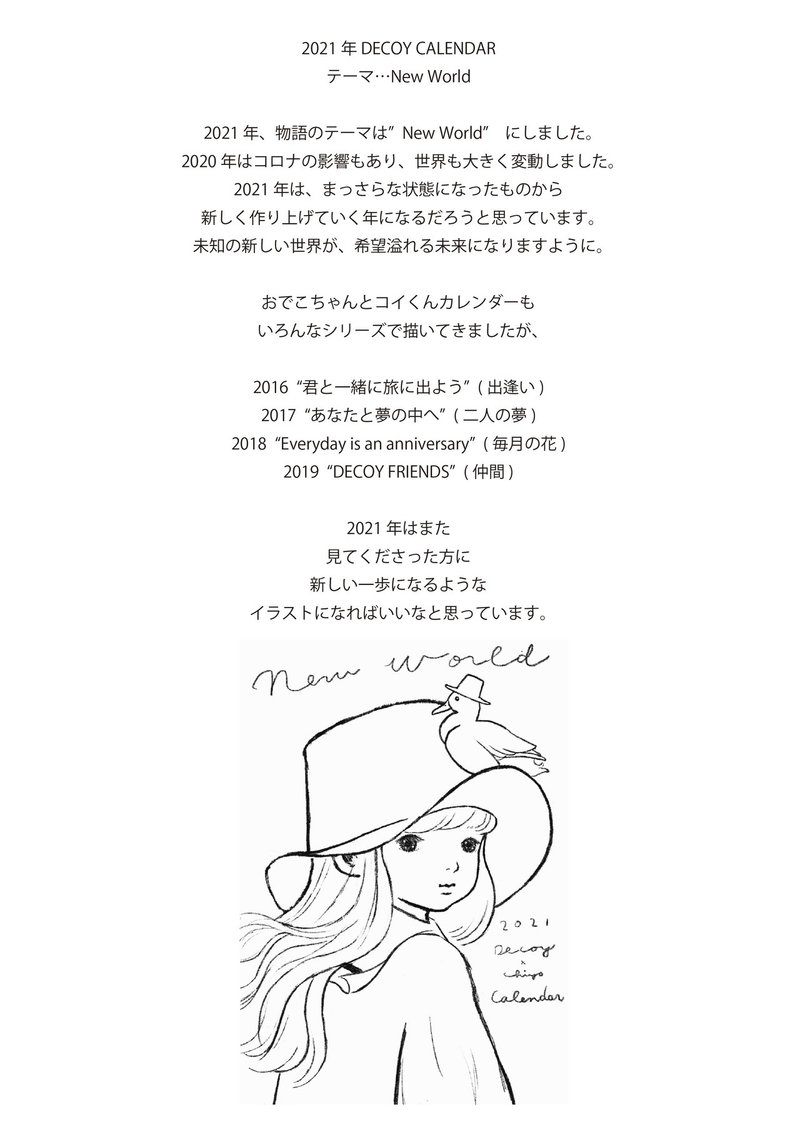 2021 年 DECOY CALENDAR
テーマ…New World
2021 年、物語のテーマは” New World”　にしました。
2020 年はコロナの影響もあり、世界も大きく変動しました。
2021 年は、まっさらな状態になったものから
新しく作り上げていく年になるだろうと思っています。
未知の新しい世界が、希望溢れる未来になりますように。
おでこちゃんとコイくんカレンダーも
いろんなシリーズで描いてきましたが、
2016 “君と一緒に旅に出よう” ( 出逢い )
2017 “あなたと夢の中へ” ( 二人の夢 )
2018 “Everyday is an anniversary” ( 毎月の花 )
2019 “DECOY FRIENDS” ( 仲間 )
2021 年はまた
見てくださった方に
新しい一歩になるような
イラストになればいいなと思っています。
New World
2021
Decoy
×
chiyo
Calendar